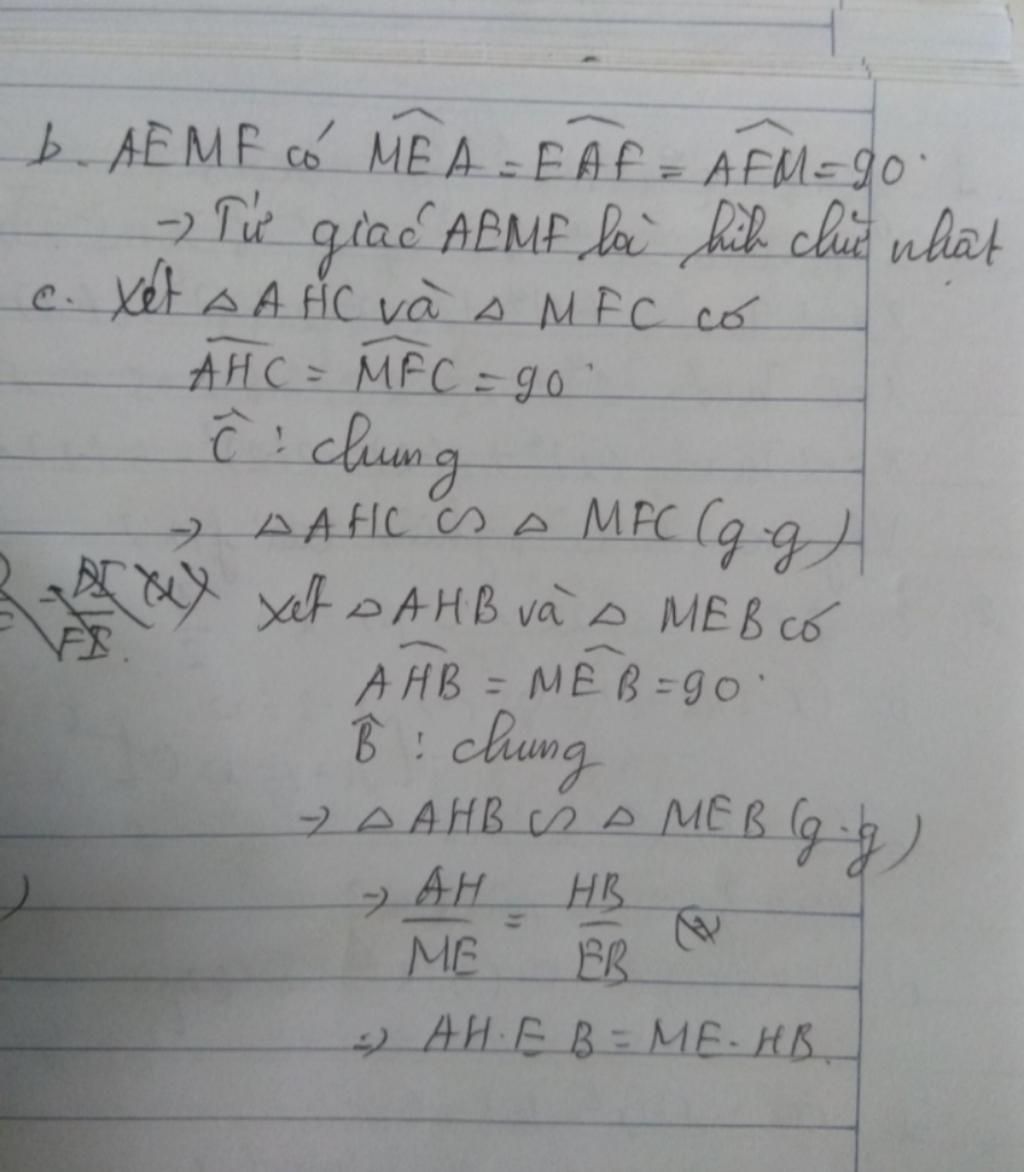 b. AEMF có \widehat{MEA} = \widehat{EAF} = \widehat{AFM} = 90°
→ Tứ giác AEMF là hìh chữ nhật
c. Xét △ AHC và △ MFC có
\widehat{AHC} = \widehat{MFC} = 90°
\widehat{C} : chung
→ △ AHC ∽ △ MFC (g.g)
Xét △ AHB và △ MEB có
\widehat{AHB} = \widehat{MEB} = 90°
\widehat{B} : chung
→ △ AHB ∽ △ MEB (g.g)
→ \frac{AH}{ME} = \frac{HB}{EB}
=> AH.EB = ME.HB.